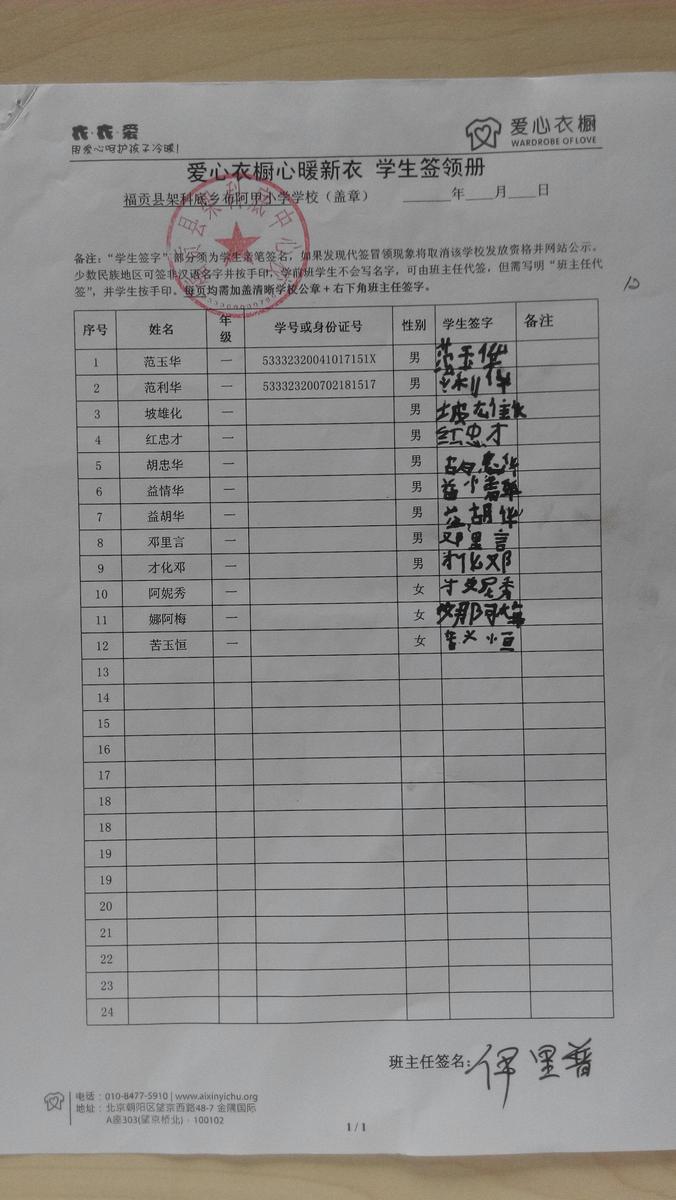 衣·衣·爱
用爱心呵护孩子冷暖!
爱心衣橱
WARDROBE OF LOVE
爱心衣橱心暖新衣 学生签领册
福贡县架科底乡布阿甲小学学校（盖章） 年 月 日
备注：“学生签字”部分须为学生亲笔签名，如果发现代签冒领现象将取消该学校发放资格并网站公示。
少数民族地区可签非汉语名字并按手印，学前班学生不会写名字，可由班主任代签，但需写明“班主任代
签”，并学生按手印。每页均需加盖清晰学校公章+右下角班主任签字。
序号 姓名 年级 学号或身份证号 性别 学生签字 备注
1 范玉华 一 53332320041017151X 男 范玉华
2 范利华 一 533323200702181517 男 范利华
3 坡雄化 一 男
4 红忠才 一 男 红忠才
5 胡忠华 一 男 胡忠华
6 益情华 一 男
7 益胡华 一 男 益胡华
8 邓里言 一 男 邓里言
9 才化邓 一 男 才化邓
10 阿妮秀 一 女
11 娜阿梅 一 女
12 苦玉恒 一 女
13
14
15
16
17
18
18
19
19
20
21
22
23
24
班主任签名：伊里普
电话：010-8477-5910 | www.aixinyichu.org
地址：北京朝阳区望京西路48-7 金隅国际
A座303(望京桥北)·100102
1 / 1